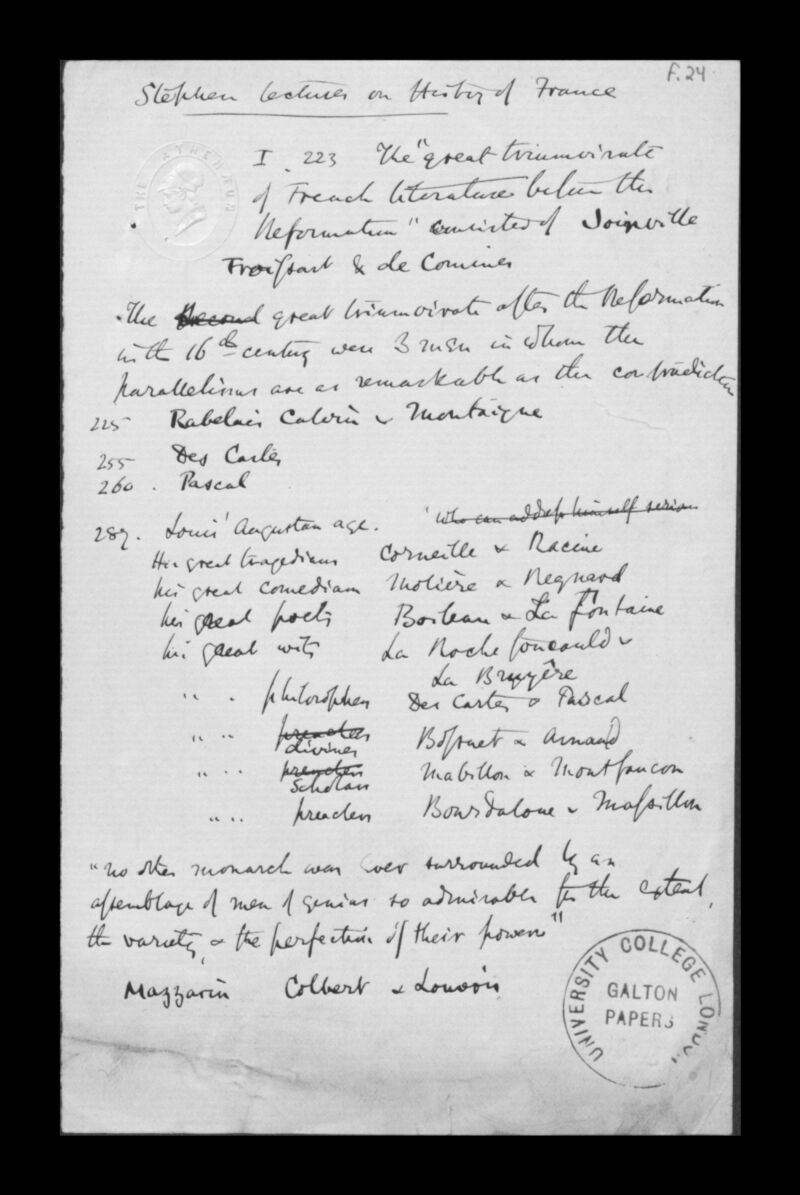 F.24
Stephen lectures on History of France
THE ATHENÆUM
I. 223 The "great triumvirate
of French literature before the
Reformation" consisted of Joinville
Froissart & de Comines
The second great triumvirate after the Reformation
in the 16th century were 3 men in whom the
parallelisms are as remarkable as the contradiction
225 Rabelais Calvin & Montaigne
255 Des Cartes
260. Pascal
289. Louis' Augustan age. "who can address himself serious
His great tragedians Corneille & Racine
his great comedians Molière & Regnard
his great poets Boileau & La Fontaine
his great wits La Rochefoucauld &
La Bruyère
" " philosophers Des Cartes & Pascal
" " preachers divines Bossuet & Arnaud
" " preachers Scholars Mabillon & Montfaucon
" " preachers Bourdaloue & Massillon
"no other monarch was ever surrounded by an
assemblage of men of genius so admirable for the extent,
the variety, & the perfection of their powers"
Mazzarin Colbert & Louvois
UNIVERSITY COLLEGE LONDON
GALTON
PAPERS